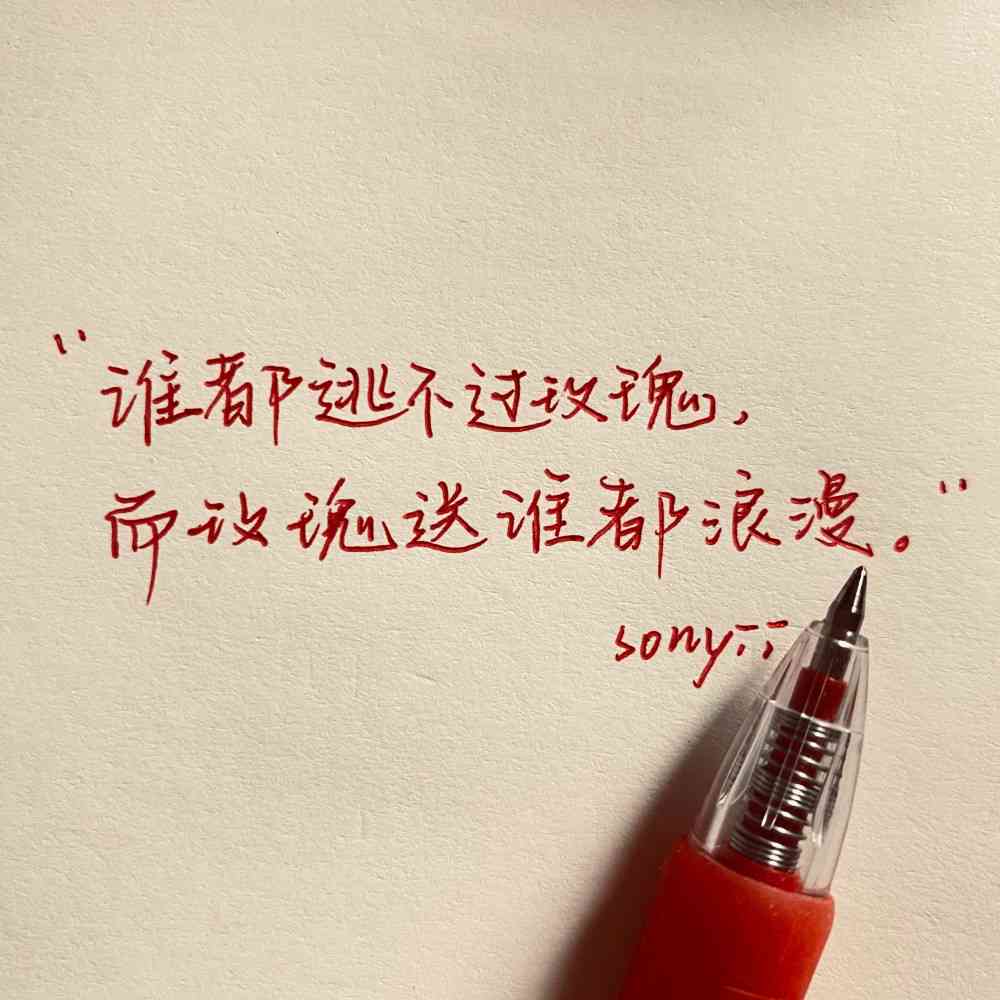 "谁都逃不过玫瑰,
而玫瑰送谁都浪漫。"
sony